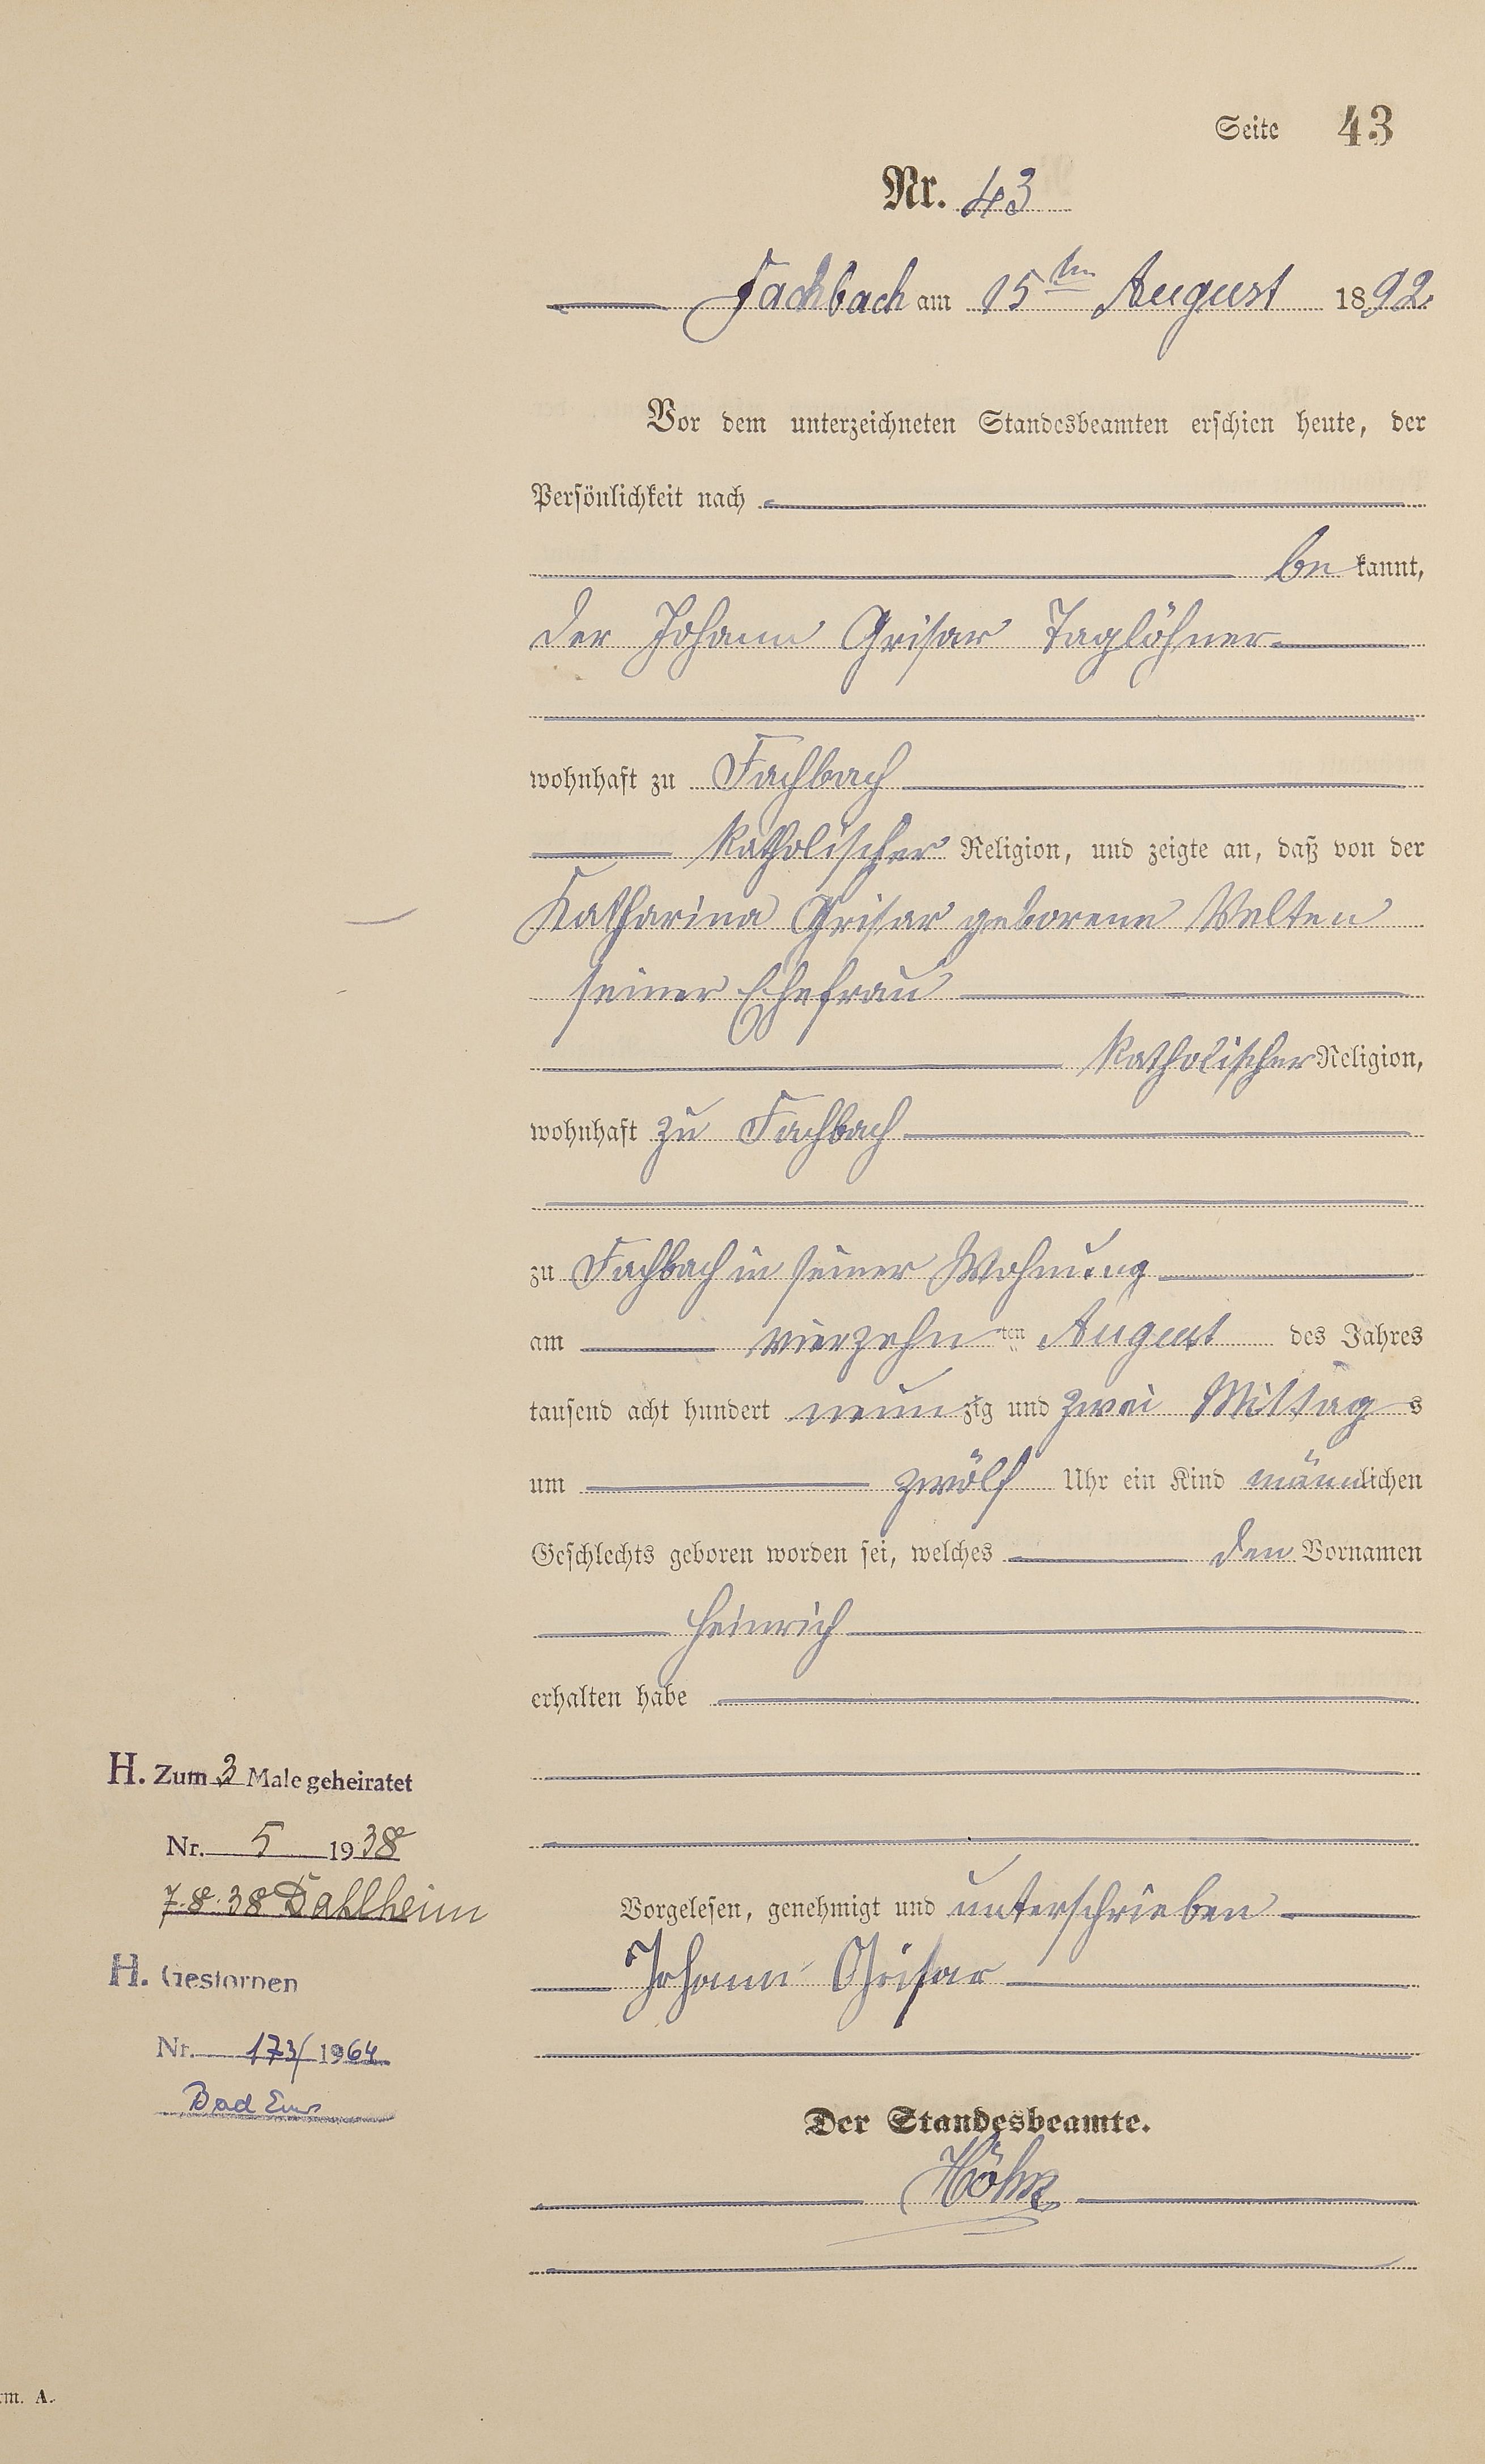 Seite 43
Nr. 43
Fachbach am 15ten August 1892.
Vor dem unterzeichneten Standesbeamten erschien heute, der
Persönlichkeit nach
be kannt,
der Johann Grisar Taglöhner
wohnhaft zu Fachbach
katholischer Religion, und zeigte an, daß von der
Katharina Grisar geborene Velten
seiner Ehefrau
katholischer Religion,
wohnhaft zu Fachbach
zu Fachbach in seiner Wohnung
am vierzehn ten August des Jahres
tausend acht hundert neunzig und zwei Mittags
um zwölf Uhr ein Kind männlichen
Geschlechts geboren worden sei, welches den Vornamen
Heinrich
erhalten habe
Vorgelesen, genehmigt und unterschrieben
Johann Grisar
Der Standesbeamte.
Höhn
H. Zum 3 Male geheiratet
Nr. 5 1938
7.8.38 Dahlheim
H. Gestorben
Nr. 173/1964
Bad Ems
rm. A.